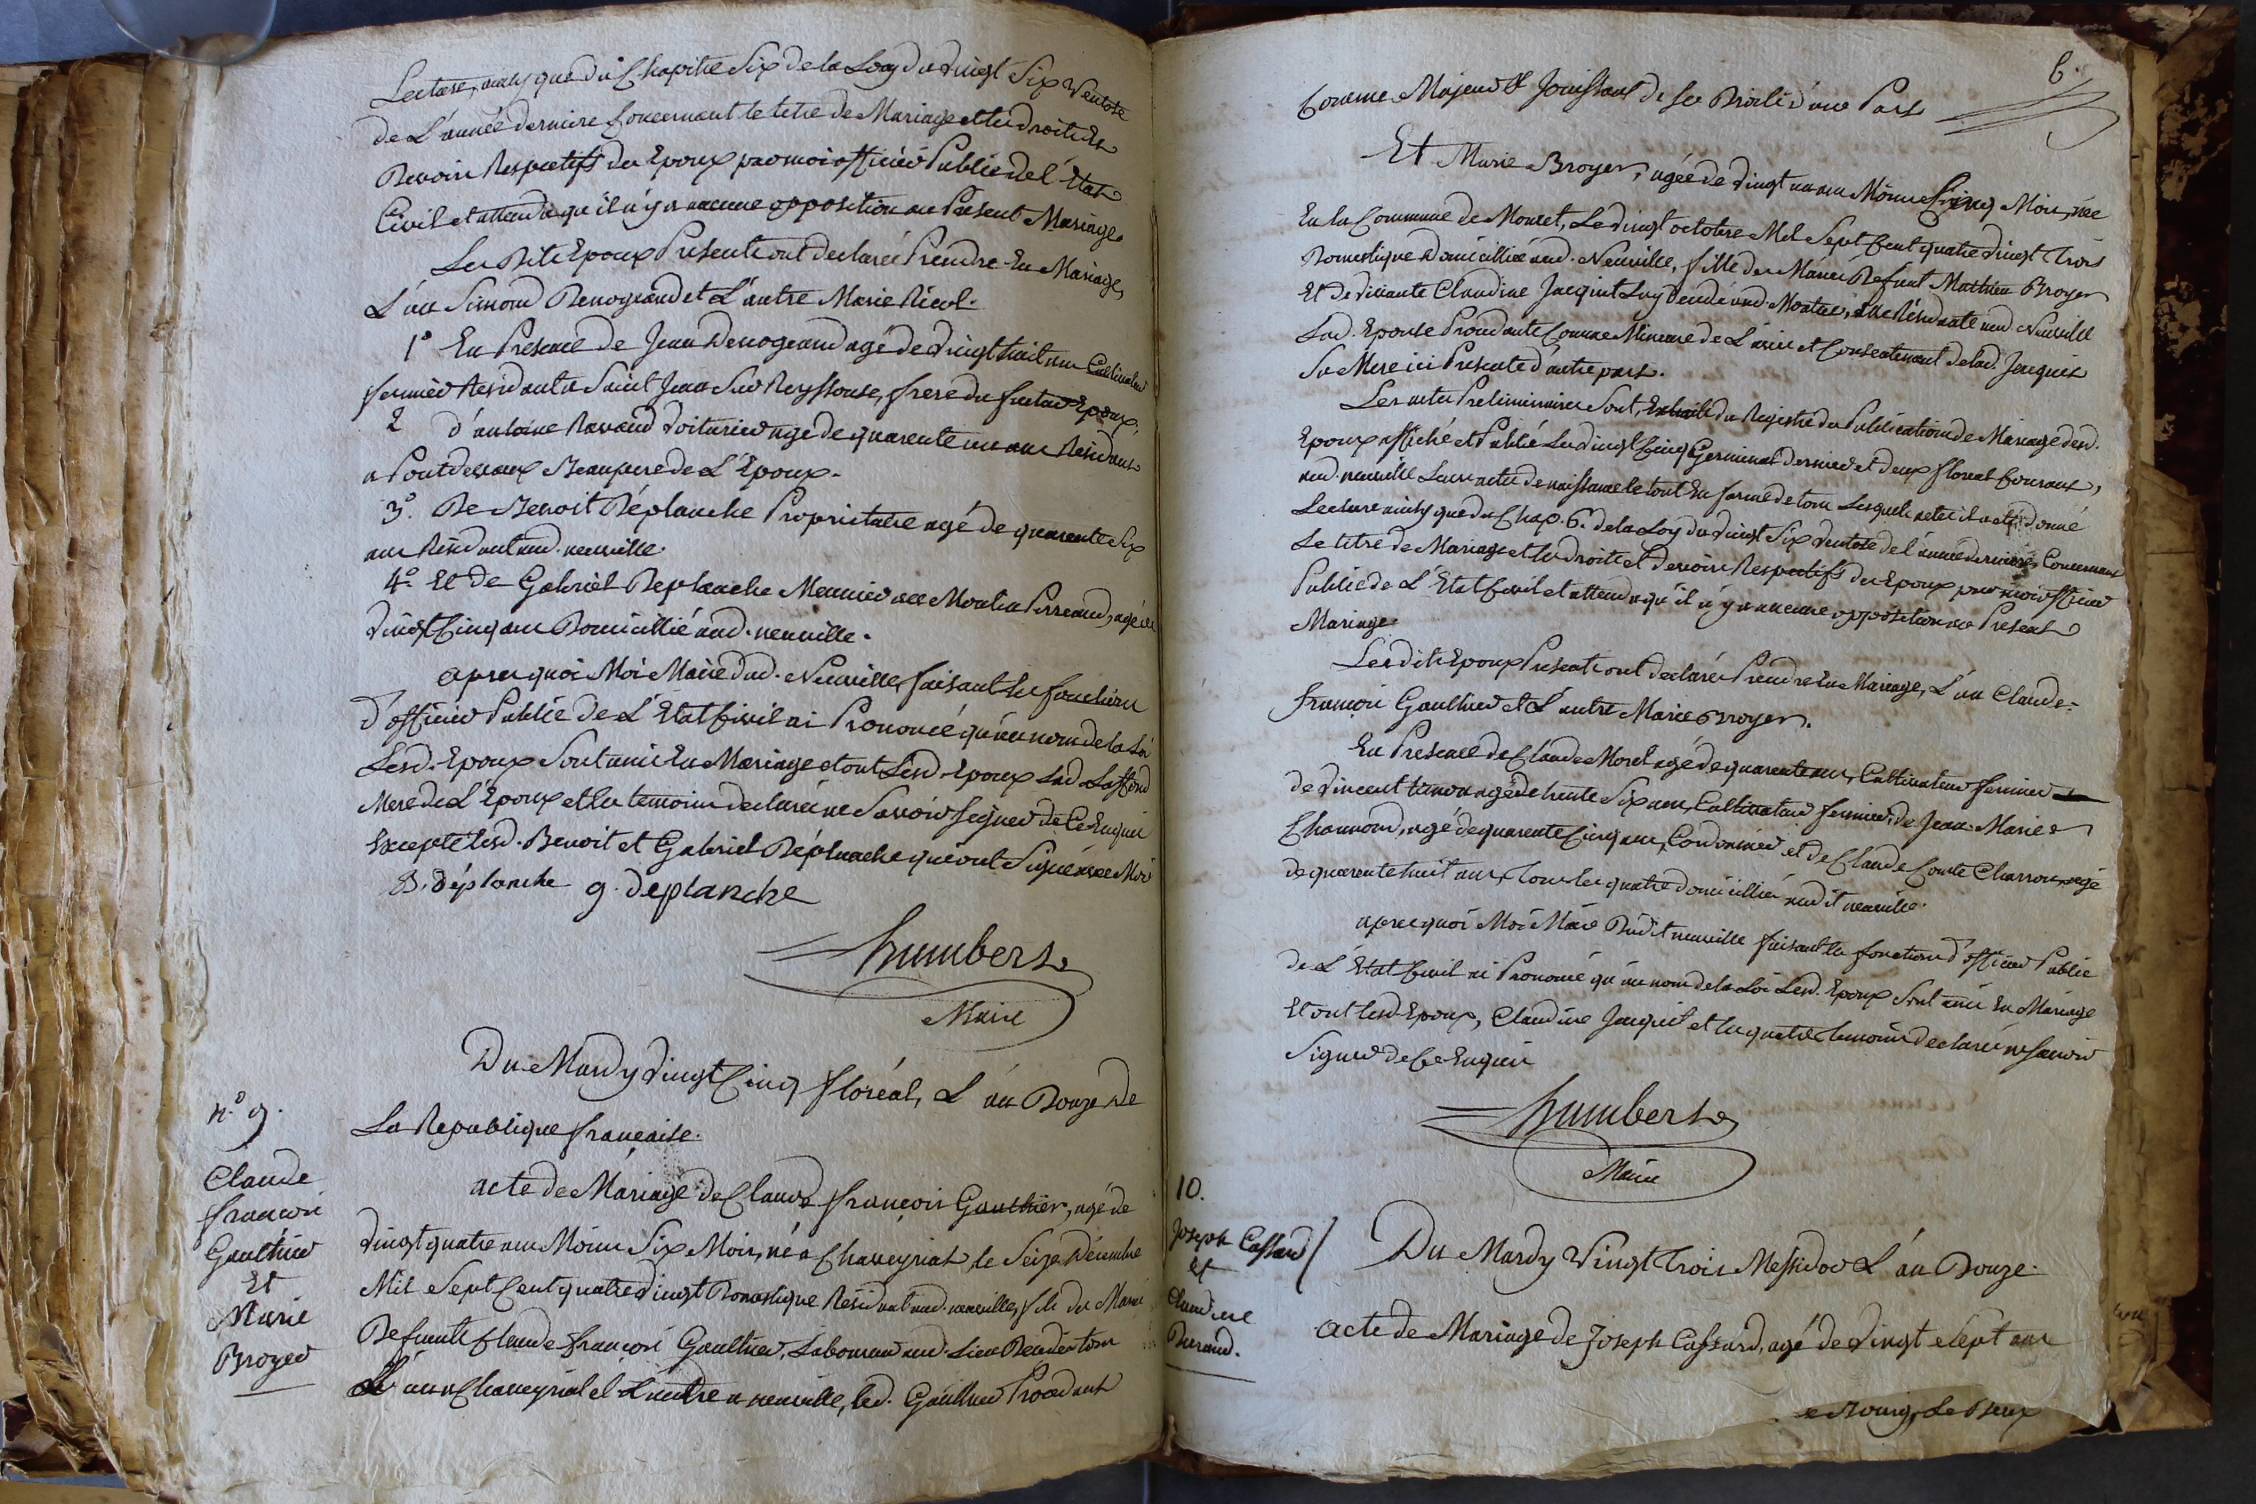 Lecture, ainsy que du Chapitre Six de la Loy du vingt Six Ventose
de L'année derniere Concernant le titre de Mariage et les droits et
Devoirs Respectifs des Epoux par moi officier Public de l'état
Civil et attendu qu'il n'y a aucune opposition au Présent Mariage
Les Dits Epoux Présents ont declarés Prendre En Mariage,
L'un Simond Renogeand et L'autre Marie Nicol.
1° En Presence de Jean Renogeand agé de vingt huit ans Cultivateur
fermier Residant a Saint Jean Sur Reyssouse, frere du futur Epoux,
2 d'antoine Ravaud voiturier agé de quarente un ans Residant
a Pont devaux Beaupere de L'Epoux.
3°. De Benoit Déplanche Propriétaire agé de quarente Six
ans Résidant aud. neuville.
4°. Et de Gabriel Deplanche Meunier au Moulin Perreaud, agé de
vingt Cinq ans Domicillié aud. neuville.
apres quoi Moi Maire dud. Neuville, faisant les fonctions
d'officier Public de L'Etat Civil ai Prononcé qu'au nom de la Loi
Lesd. Epoux Sont unis En Mariage et ont Lesd. Epoux Lad. Laffond
Mere de L'Epoux et les temoins declarés ne Savoir Signer de Ce Enquis
Excepté lesd. Benoit et Gabriel Déplanche qui ont Signé avec Moi
B. déplanche g. deplanche
humbert
Maire
Du Mardy vingt Cinq floréal, L'an Douze de
La Republique française.
n.° 9.
Claude
françois
Gauthier
Et
Marie
Broyer
acte de Mariage de Claude françois Gauthier, agé de
vingt quatre ans Moins Six Mois, né a Chaveyriat, le Seize Décembre
Mil Sept Cent quatre vingt Domestique Résidant aud. neuville, fils des Mariés
Defunts Claude françois Gauthier, Laboureur aud. Lieu Décédés tous
L'un a Chaveyriat et L'autre a neuville, led. Gauthier Procedant
6.
Comme Majeur & Jouissant de ses Droits d'une Part
Et Marie Broyer, agée de vingt un ans Moins Cinq Mois, née
En la Commune de Montet, Le vingt octobre Mil Sept Cent quatre vingt Trois
Domestique Domicilliée aud. Neuville, fille des Mariés Defunt Mathieu Broyer
Et de vivante Claudine Jacquet Luy Décédé aud. Elle Résidante aud. Neuville
Lad. Epouse Procedante Comme Mineure de L'avis et Consentement de lad. Jacquet
Sa Mere ici Presente d'autre part.
Les actes Preliminaires Sont, Extraits du Registre des Publications de Mariage desd.
Epoux affiché et Publié Les vingt Cinq Germinal dernier et deux floreal Courant,
aud. neuville Leurs actes de naissance le tout En forme de tous Lesquels actes il a eté donné
Lecture ainsy que du Chap. 6. de la Loy du vingt Six Ventose de l'année derniere, Concernant
Le titre de Mariage et les droits et devoirs Respectifs des Epoux par moi officier
Public de L'Etat Civil et attendu qu'il n'y a aucune opposition au Présent
Mariage
Les dits Epoux Presents ont declarés Prendre En Mariage, L'un Claude-
françois Gauthier et L'autre Marie Broyer.
En Presence de Claude Morel agé de quarente ans, Cultivateur fermier
de Vincent agé de trente Six ans, Cultivateur fermier, de Jean Marie
Chamond, agé de quarente Cinq ans, Cordonnier et de Claude Comte Charron, agé
de quarente huit ans, tous les quatre domicilliés audit neuville.
apres quoi Moi Maire Dudit neuville faisant les fonctions d'officier Public
de L'Etat Civil ai Prononcé qu'au nom de la Loi Lesd. Epoux Sont unis En Mariage
Et ont lesd. Epoux, Claudine Jacquet et les quatre temoins declarés ne Savoir
Signer de Ce Enquis
humbert
Maire
10.
Joseph Cassard
et
Claudine
Durand.
Du Mardy Vingt Trois Messidor L'an Douze.
Acte de Mariage de Joseph Cassard, agé de vingt Sept ans
a Bourg, Le Deux